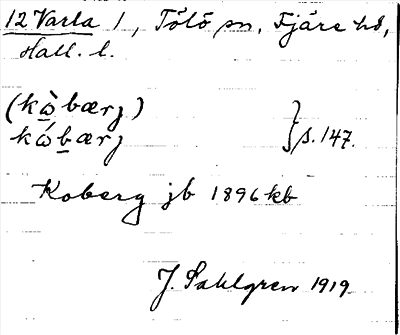 12 Varla 1, Tölö sn, Fjäre hd,
Hall. l.
(kὼbærj)
kώbærj } s. 147.
Koberg jb 1896 kb
J. Sahlgren 1919